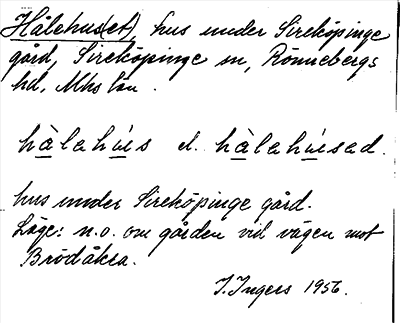 Hålehus(et), hus under Sireköpinge
gård, Sireköpinge sn, Rönnebergs
hd, Mhs län.
hàlahús el. hàlahúsad.
hus under Sireköpinge gård.
Läge: n.o. om gården vid vägen mot
Brödåkra.
I. Ingers 1956.